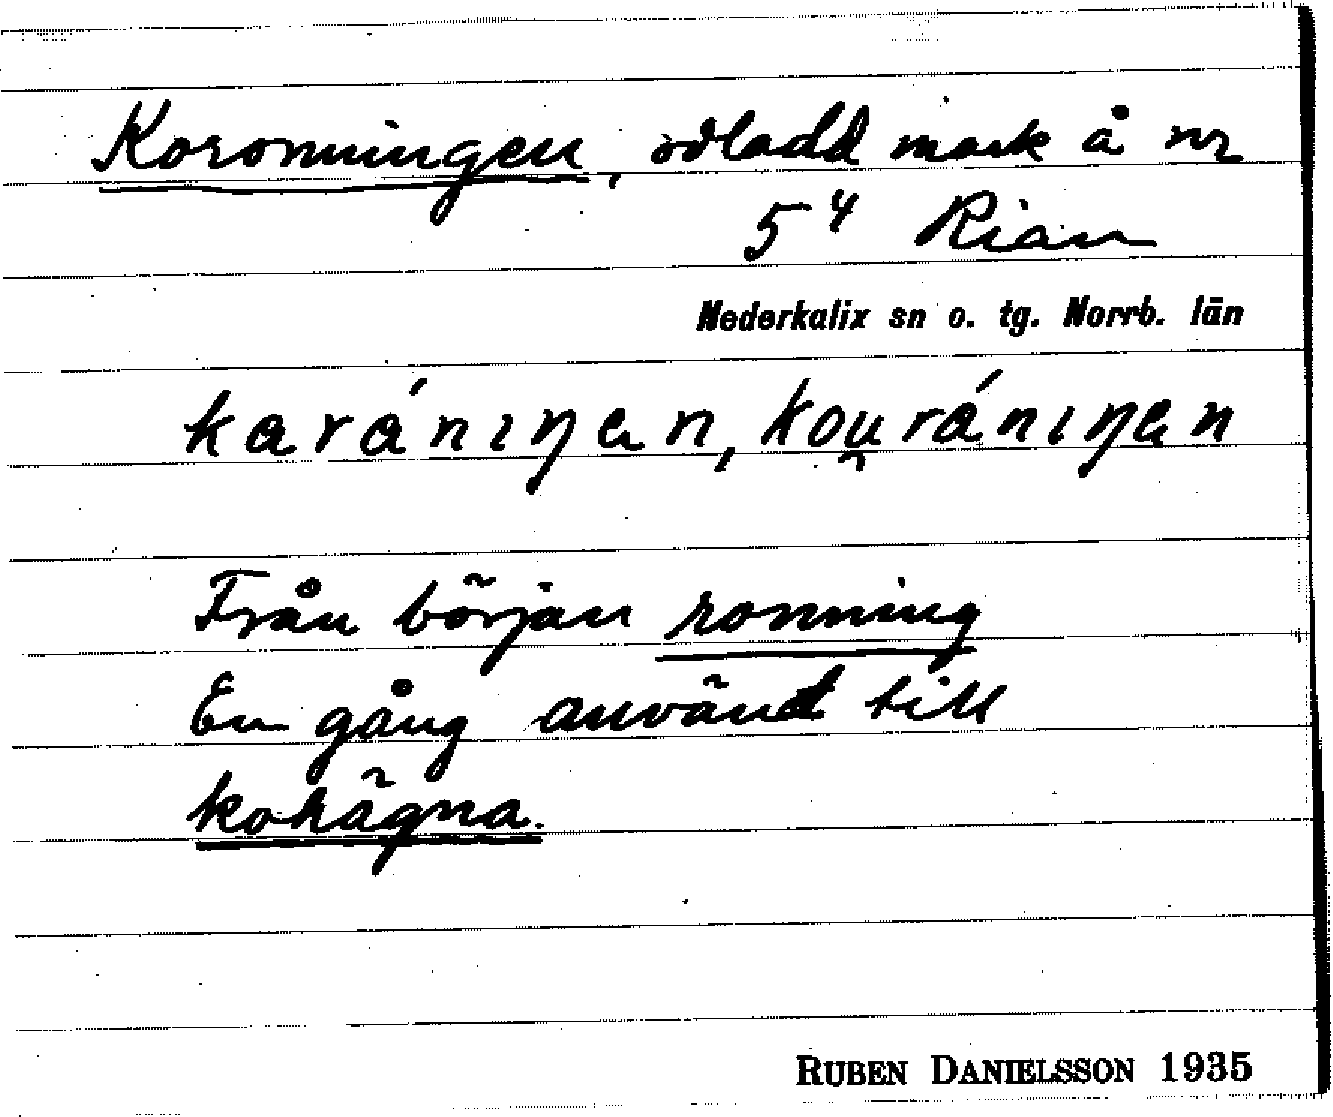 Koronningen, odladd mark å nr
5⁴ Rian
Nederkalix sn o. tg. Norrb. län
karánıŋen, kou̯ránıŋen
Från början ronning
En gång använd till
kohägna.
RUBEN DANIELSSON 1935